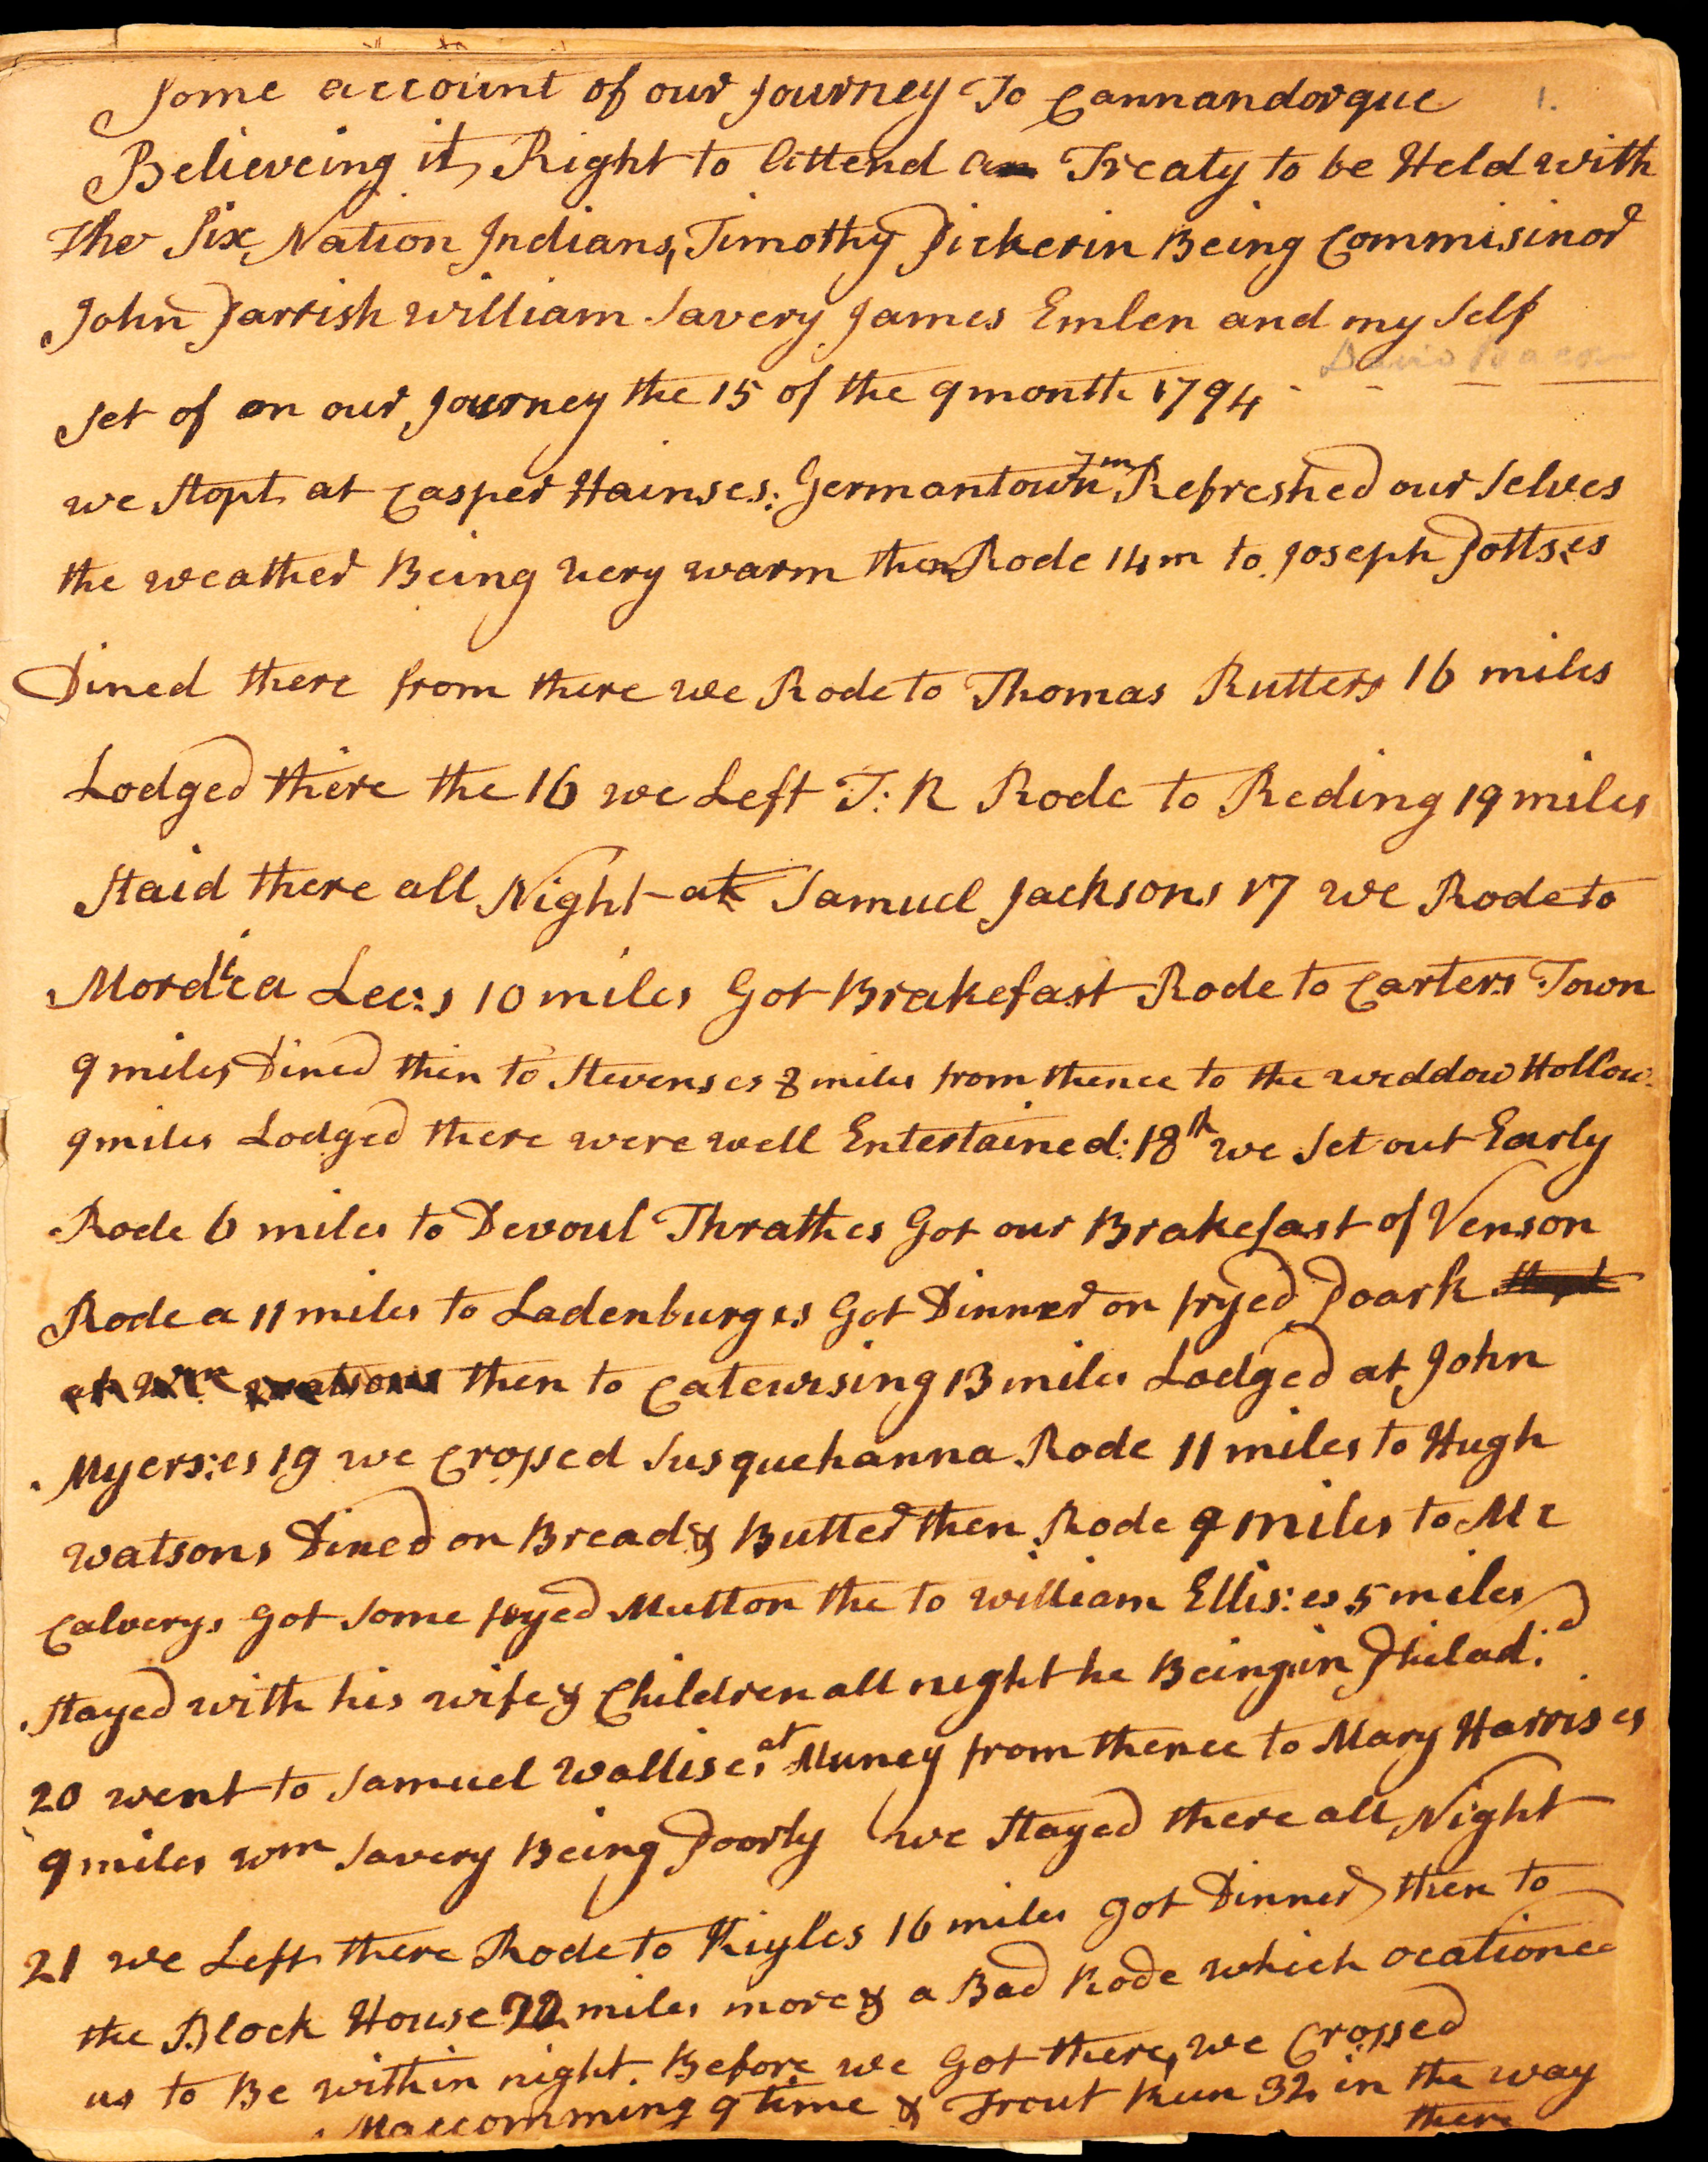 Some account of our Journey To Cannandorque 1.
Believeing it Right to Attend a Treaty to be Held with
the Six Nation Indians, Timothy Pickerin Being Commisinor
John Parrish William Savery James Emlen and my Self
David Bacon
Set of on our Journey the 15 of the 9 month 1794
we Stopt at Casper Hainses: Germantown Refreshed our Selves
the weather Being very warm then Rode 14 m to Joseph Potts:es
Dined there from there we Rode to Thomas Rutters 16 miles
Lodged there the 16 we Left T: R Rode to Reding 19 miles
Staid there all Night at Samuel Jacksons 17 we Rode to
Mordica Lee:s 10 miles Got Brakefast Rode to Carters Town
9 miles Dined then to Stevenses 8 miles from thence to the weddow Hollow
9 miles Lodged there were well Entertained: 18th we Set out Early
Rode 6 miles to Devoul Thrathes Got our Brakefast of Venson
Rode a 11 miles to Ladenburges Got Dinner on fryed Poark
then to Catewising 13 miles Lodged at John
Myers:es 19 we Crossed Susquehanna Rode 11 miles to Hugh
Watsons Dined on Bread & Butter then Rode 9 miles to Mc
Calverys Got Some fryed Mutton the to William Ellis:es 5 miles
Stayed with his wife & Children all night he Being in Philad:
20 went to Samuel Wallises at Muney from thence to Mary Harrises
9 miles Wm Savery Being Poorly we Stayed there all Night
21 we Left there Rode to Kyles 16 miles Got Dinner then to
the Block House miles more & a Bad Rode which ocationed
us to Be within night. Before we Got there, we Crossed
9 time & Trout Run 32 in the way
there